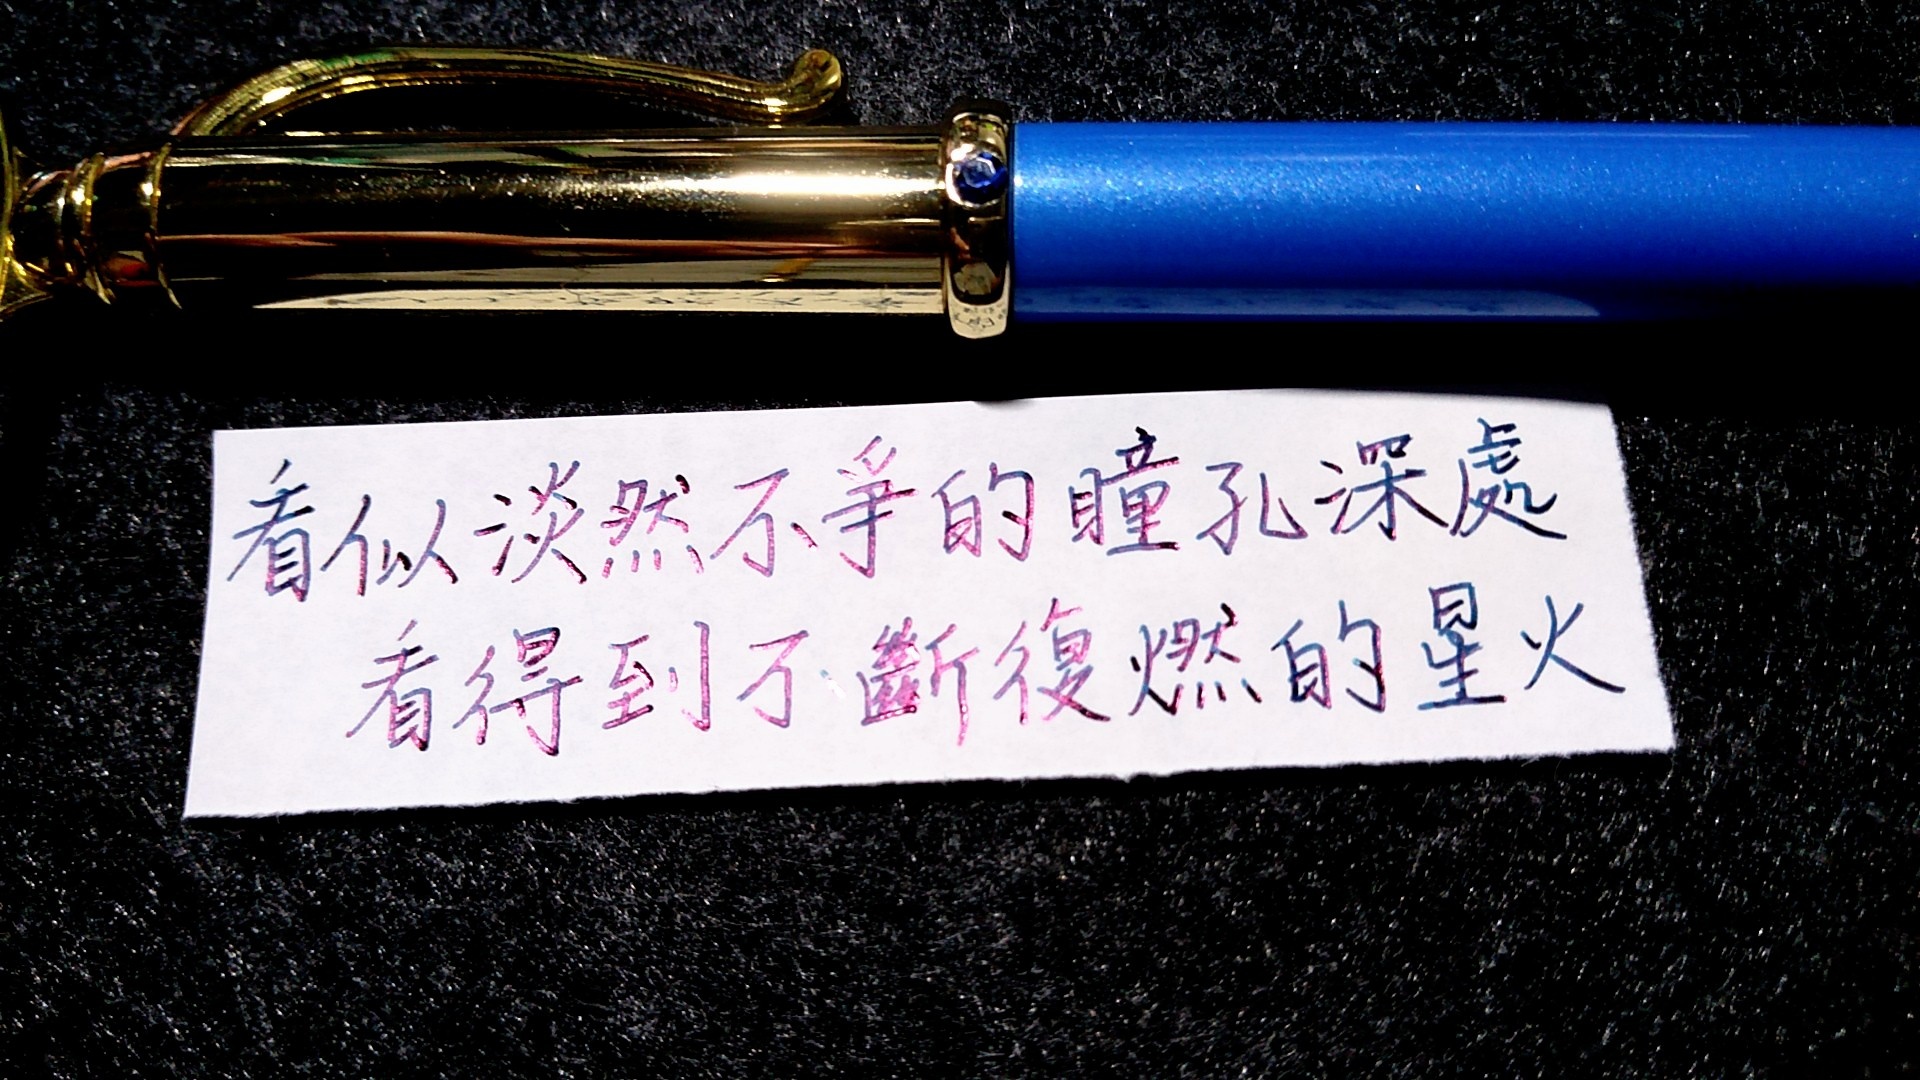 看似淡然不爭的瞳孔深處
看得到不斷復燃的星火